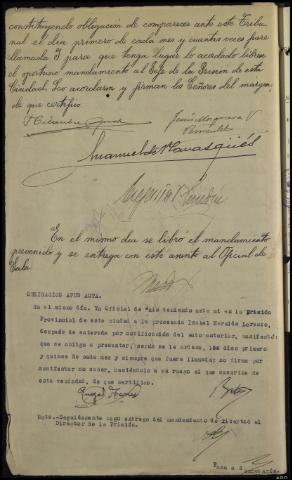 constituyendo obligación de comparecer ante este Tribu-
nal el día primero de cada mes y cuantas veces fuere
llamada y para que tenga lugar lo acordado líbrese
el oportuno mandamiento al Jefe de la Prisión de esta
Ciudad. Lo acordaron y firman los Señores del margen
de que certifico
En el mismo día se libró el mandamiento
prevenido y se entrega con este asunto al Oficial de
Sala
OBLIGACION APUD ACTA.
En el mismo día. Yo Oficial de Sala teniendo ante mí en la Prisión
Provincial de esta ciudad a la procesada Isabel Hermida Lorenzo,
después de enterada por notificación del auto anterior, manifestó:
que se obliga a presentar, donde se le ordene, los días primero
y quince de cada mes y siempre que fuere llamada; no firma por
manifestar no saber, haciéndolo a su ruego el que suscribe de
esta vecindad, de que certifico.
Nota.-Seguidamente hago entrega del mandamiento de libertad al
Director de la Prisión.
Pasa a S